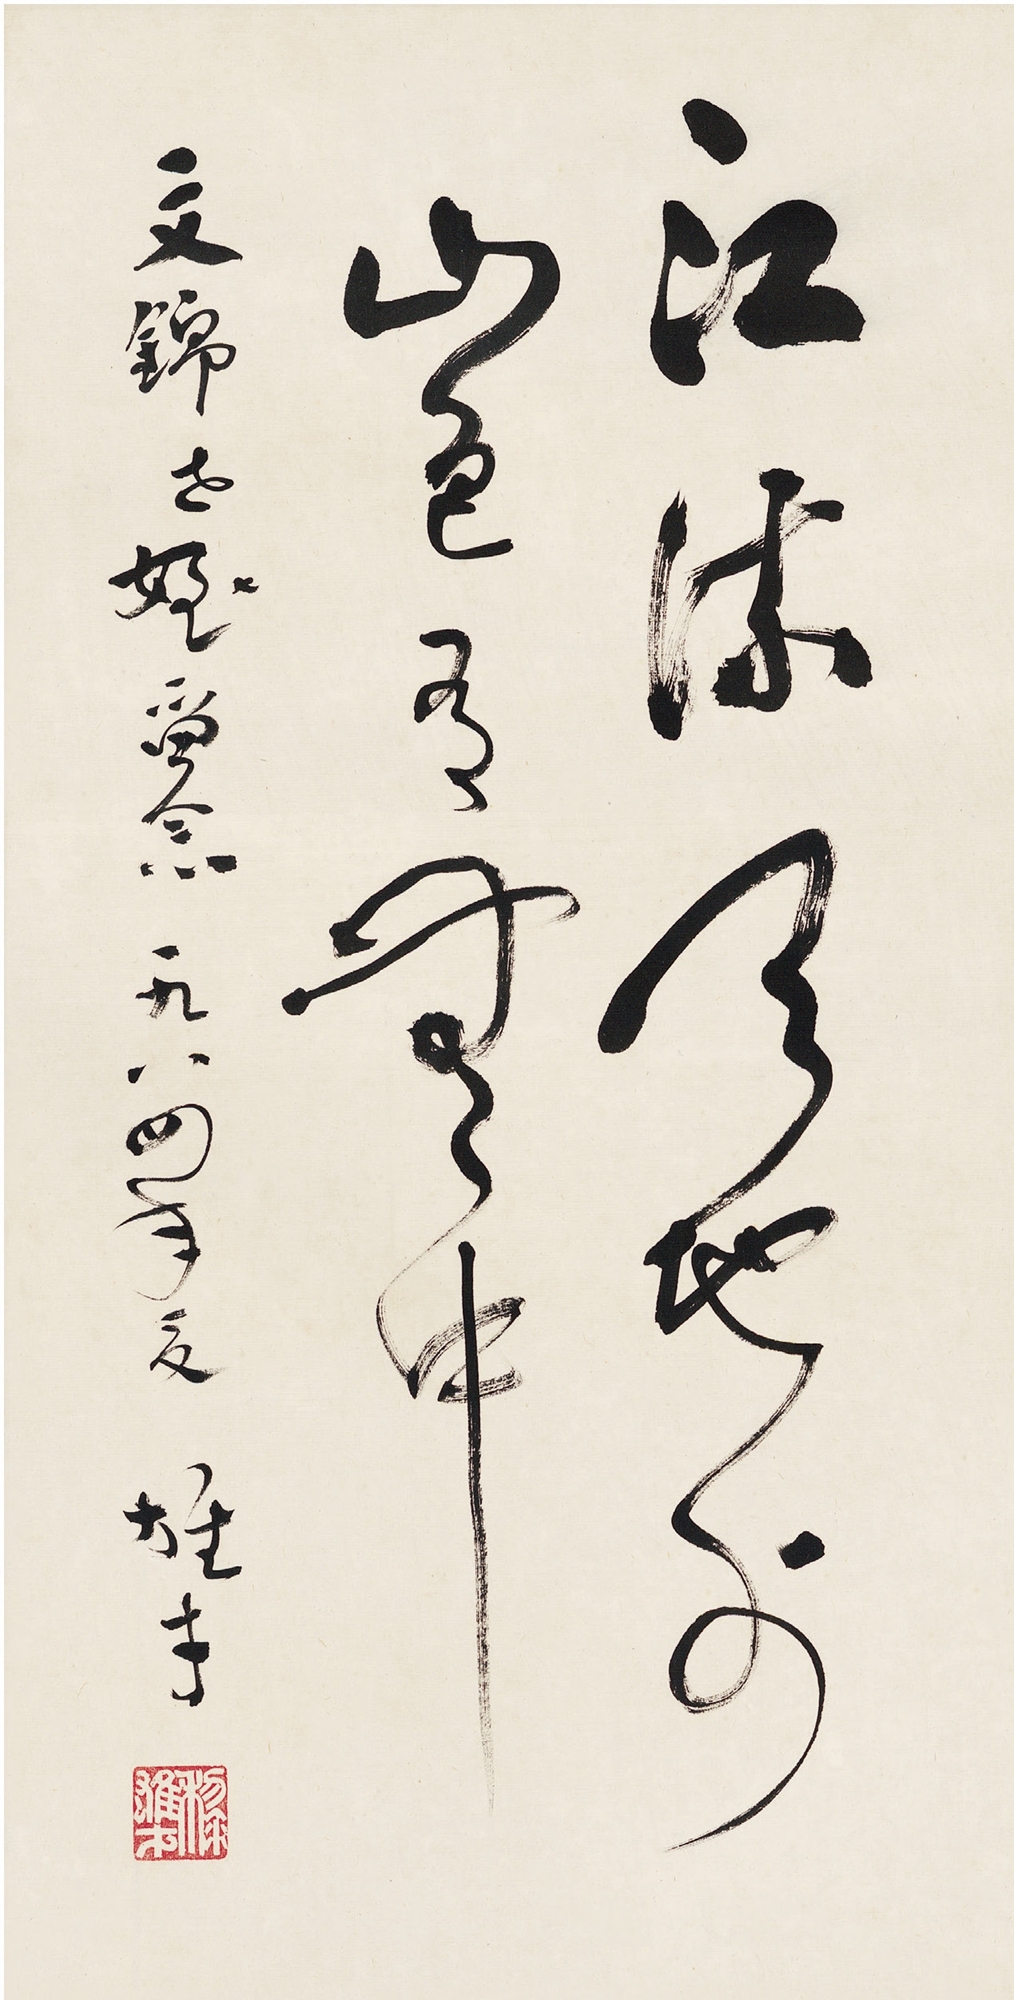 江流天地外
山色有無中
文錦世姪留念 一九八四年夏 雄才
黎雄才